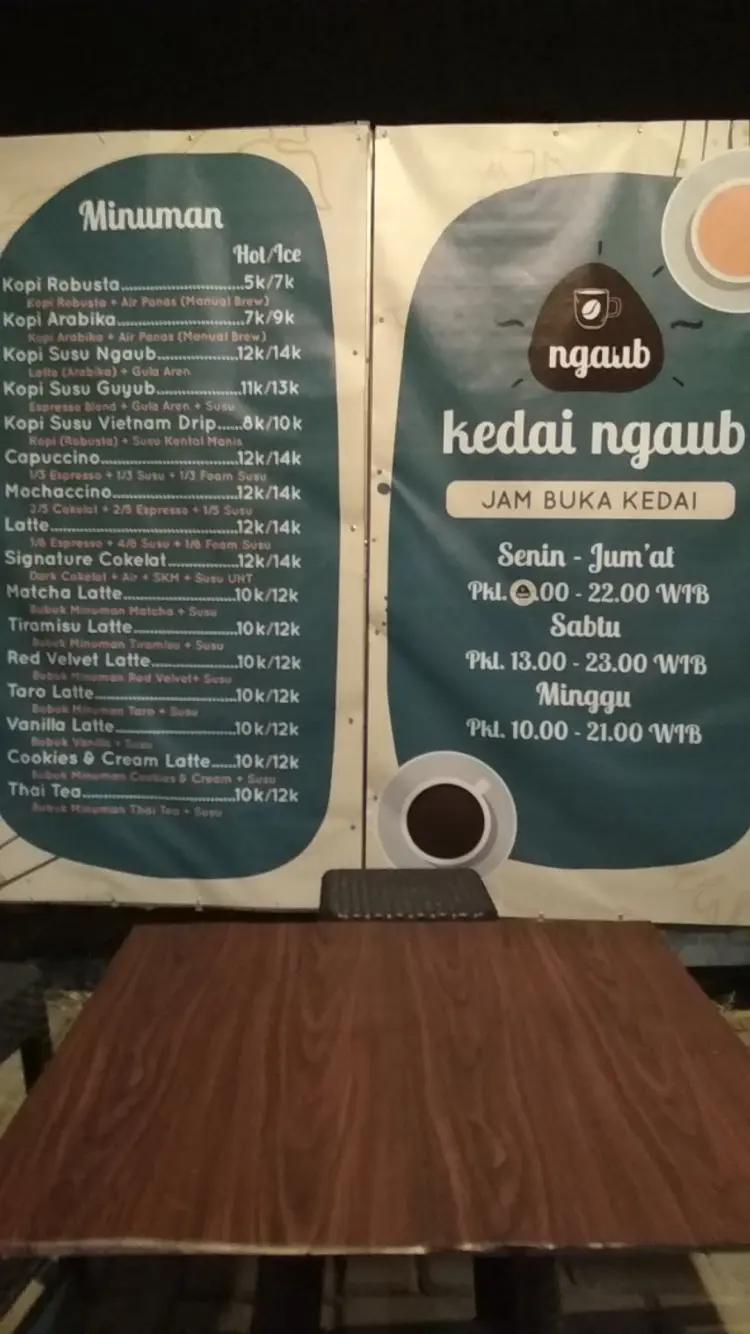 Minuman
Hot/Ice
Kopi Robusta 5k/7k
Kopi Robusta + Air Panas (Manual Brew)
Kopi Arabika 7k/9k
Kopi Arabika + Air Panas (Manual Brew)
Kopi Susu Ngaub 12k/14k
Latte (Arabika) + Gula Aren
Kopi Susu Guyub 11k/13k
Espresso Blend + Gula Aren + Susu
Kopi Susu Vietnam Drip 8k/10k
Kopi (Robusta) + Susu Kental Manis
Capuccino 12k/14k
1/3 Espresso + 1/3 Susu + 1/3 Foam Susu
Mochaccino 12k/14k
2/5 Cokelat + 2/5 Espresso + 1/5 Susu
Latte 12k/14k
1/6 Espresso + 4/6 Susu + 1/6 Foam Susu
Signature Cokelat 12k/14k
Dark Cokelat + Air + SKM + Susu UHT
Matcha Latte 10k/12k
Bubuk Minuman Matcha + Susu
Tiramisu Latte 10k/12k
Bubuk Minuman Tiramisu + Susu
Red Velvet Latte 10k/12k
Bubuk Minuman Red Velvet+ Susu
Taro Latte 10k/12k
Bubuk Minuman Taro + Susu
Vanilla Latte 10k/12k
Bubuk Vanilla + Susu
Cookies & Cream Latte 10k/12k
Bubuk Minuman Cookies & Cream + Susu
Thai Tea 10k/12k
Bubuk Minuman Thai Tea + Susu
ngaub
kedai ngaub
JAM BUKA KEDAI
Senin - Jum'at
Pkl. .00 - 22.00 WIB
Sabtu
Pkl. 13.00 - 23.00 WIB
Minggu
Pkl. 10.00 - 21.00 WIB